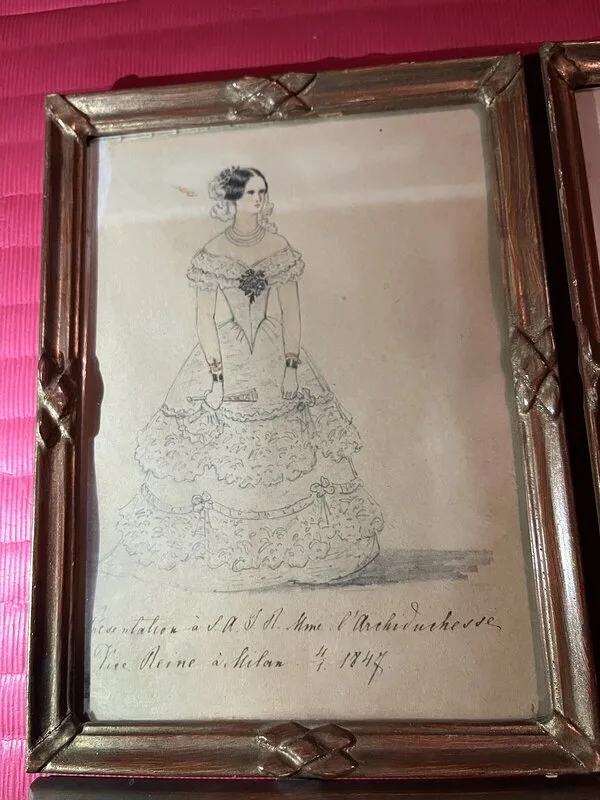 resentation à S. A. I. R. Mme l'Archiduchesse
Vice Reine à Milan 4/1 1847